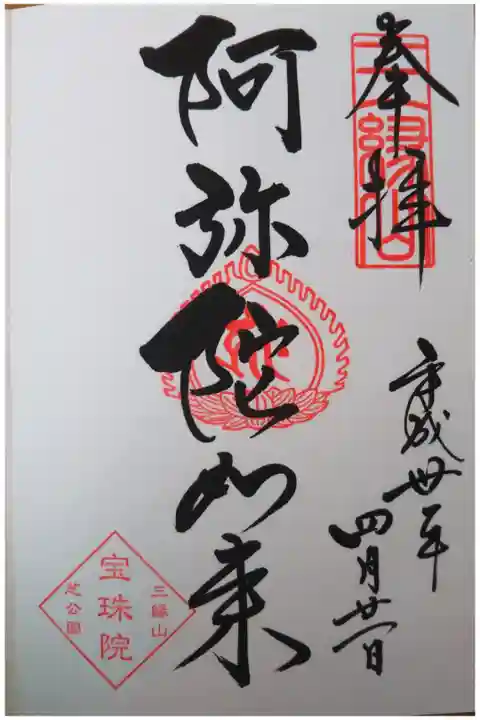 三縁山
奉拝
平成丗年
四月廿一日
阿弥陀如来
三縁山
宝珠院
芝公園